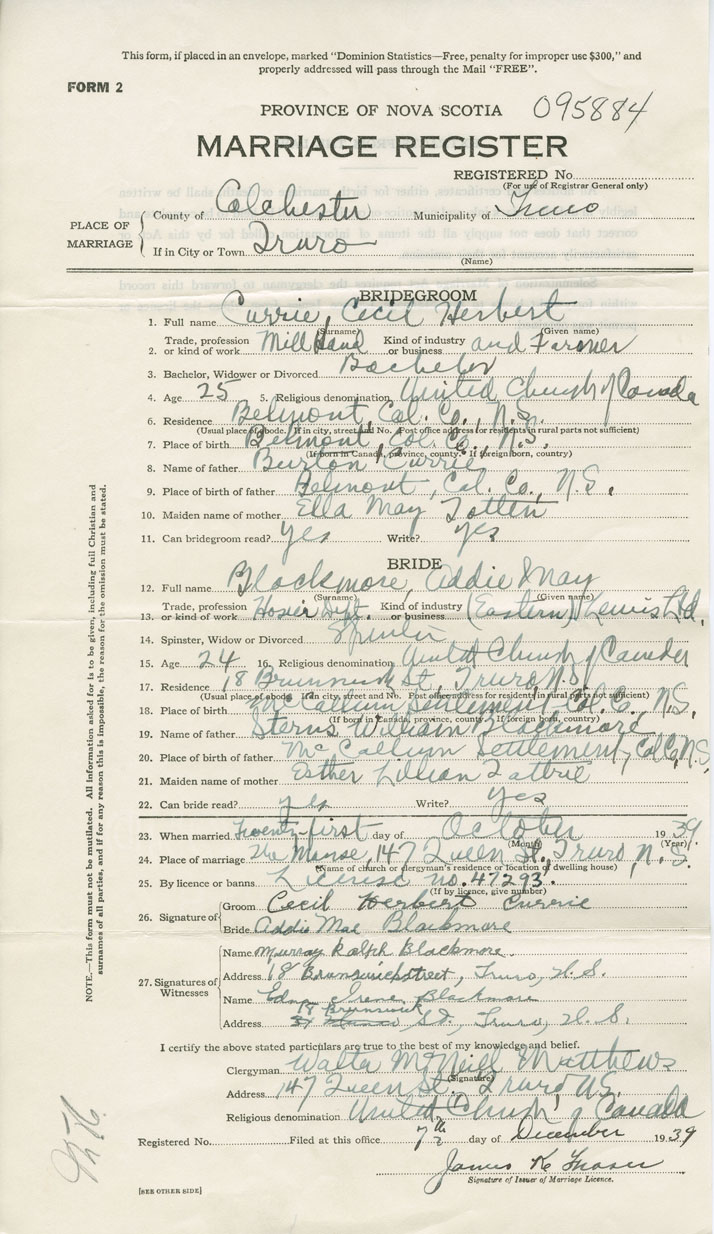 This form, if placed in an envelope, marked "Dominion Statistics—Free, penalty for improper use $300," and
properly addressed will pass through the Mail "FREE".
FORM 2
PROVINCE OF NOVA SCOTIA 095884
MARRIAGE REGISTER
REGISTERED No.
(For use of Registrar General only)
PLACE OF MARRIAGE
County of Colchester Municipality of Truro
If in City or Town Truro
(Name)
BRIDEGROOM
1. Full name Currie, Cecil Herbert
(Surname) (Given name)
2. Trade, profession or kind of work Mill Hand Kind of industry or business and Farmer
3. Bachelor, Widower or Divorced Bachelor
4. Age 25 5. Religious denomination United Church of Canada
6. Residence Belmont, Col. Co., N.S.
(Usual place of abode. If in city, street and No. Post office address for residents in rural parts not sufficient)
7. Place of birth Belmont, Col. Co., N.S.
(If born in Canada, province, county. If foreign born, country)
8. Name of father Burton Currie
9. Place of birth of father Belmont, Col. Co., N.S.
10. Maiden name of mother Ella May Totten
11. Can bridegroom read? yes Write? yes
BRIDE
12. Full name Blackmore, Addie May
(Surname) (Given name)
13. Trade, profession or kind of work Hosier Dept. Kind of industry or business (Eastern) Lewis Ltd.
14. Spinster, Widow or Divorced
15. Age 24 16. Religious denomination United Church of Canada
17. Residence 18 Brunswick St., Truro N.S.
(Usual place of abode. If in city, street and No. Post office address for residents in rural parts not sufficient)
18. Place of birth McCallum Settlement, Col. Co., N.S.
(If born in Canada, province, county. If foreign born, country)
19. Name of father Sterns William Blackmore
20. Place of birth of father McCallum Settlement, Col. Co, N.S,
21. Maiden name of mother Esther Lillian Tattrie
22. Can bride read? yes Write? yes
23. When married Twenty-first day of October 1939.
(Month) (Year)
24. Place of marriage The Manse, 147 Queen St., Truro, N.S.
(Name of church or clergyman's residence or location of dwelling house)
25. By licence or banns License no. 47293.
(If by licence, give number)
26. Signature of
Groom Cecil Herbert Currie
Bride Addie Mae Blackmore
27. Signatures of Witnesses
Name Murray Ralph Blackmore.
Address 18 Brunswick street, Truro, N.S.
Name Edna Irene Blackmore
18 Brunswick
Address St., Truro, N.S.
I certify the above stated particulars are true to the best of my knowledge and belief.
Clergyman Walter McNeill Matthews
(Signature)
Address 147 Queen St. Truro N.S.
Religious denomination United Church of Canada
Registered No. Filed at this office 7th day of December 1939
James K Fraser
Signature of Issuer of Marriage Licence.
[SEE OTHER SIDE]
NOTE.—This form must not be mutilated. All information asked for is to be given, including full Christian and
surnames of all parties, and if for any reason this is impossible, the reason for the omission must be stated.